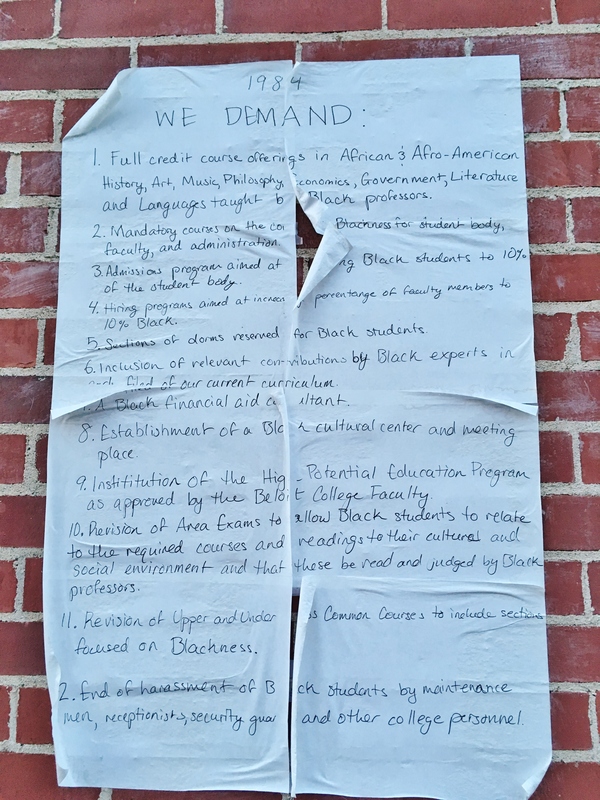 1984
WE DEMAND:
1. Full credit course offerings in African & Afro-American
History, Art, Music, Philosophy, Economics, Government, Literature
and Languages taught b Black professors.
2. Mandatory courses on the co Blackness for student body,
faculty, and administration.
3. Admissions program aimed at ng Black students to 10%
of the student body.
4. Hiring programs aimed at increas percentage of faculty members to
10% Black.
5. Sections of dorms reserved for Black students.
6. Inclusion of relevant contributions by Black experts in
each filed of our current curriculum.
7. A Black financial aid co ultant.
8. Establishment of a Black cultural center and meeting
place.
9. Instititution of the Hig -Potential Education Program
as approved by the Beloit College Faculty.
10. Revision of Area Exams to allow Black students to relate
to the required courses and readings to their cultural and
social environment and that those be read and judged by Black
professors.
11. Revision of Upper and Under ss Common Courses to include sections
focused on Blackness.
2. End of harassment of B ck students by maintenance
men, receptionists, security guar and other college personnel.